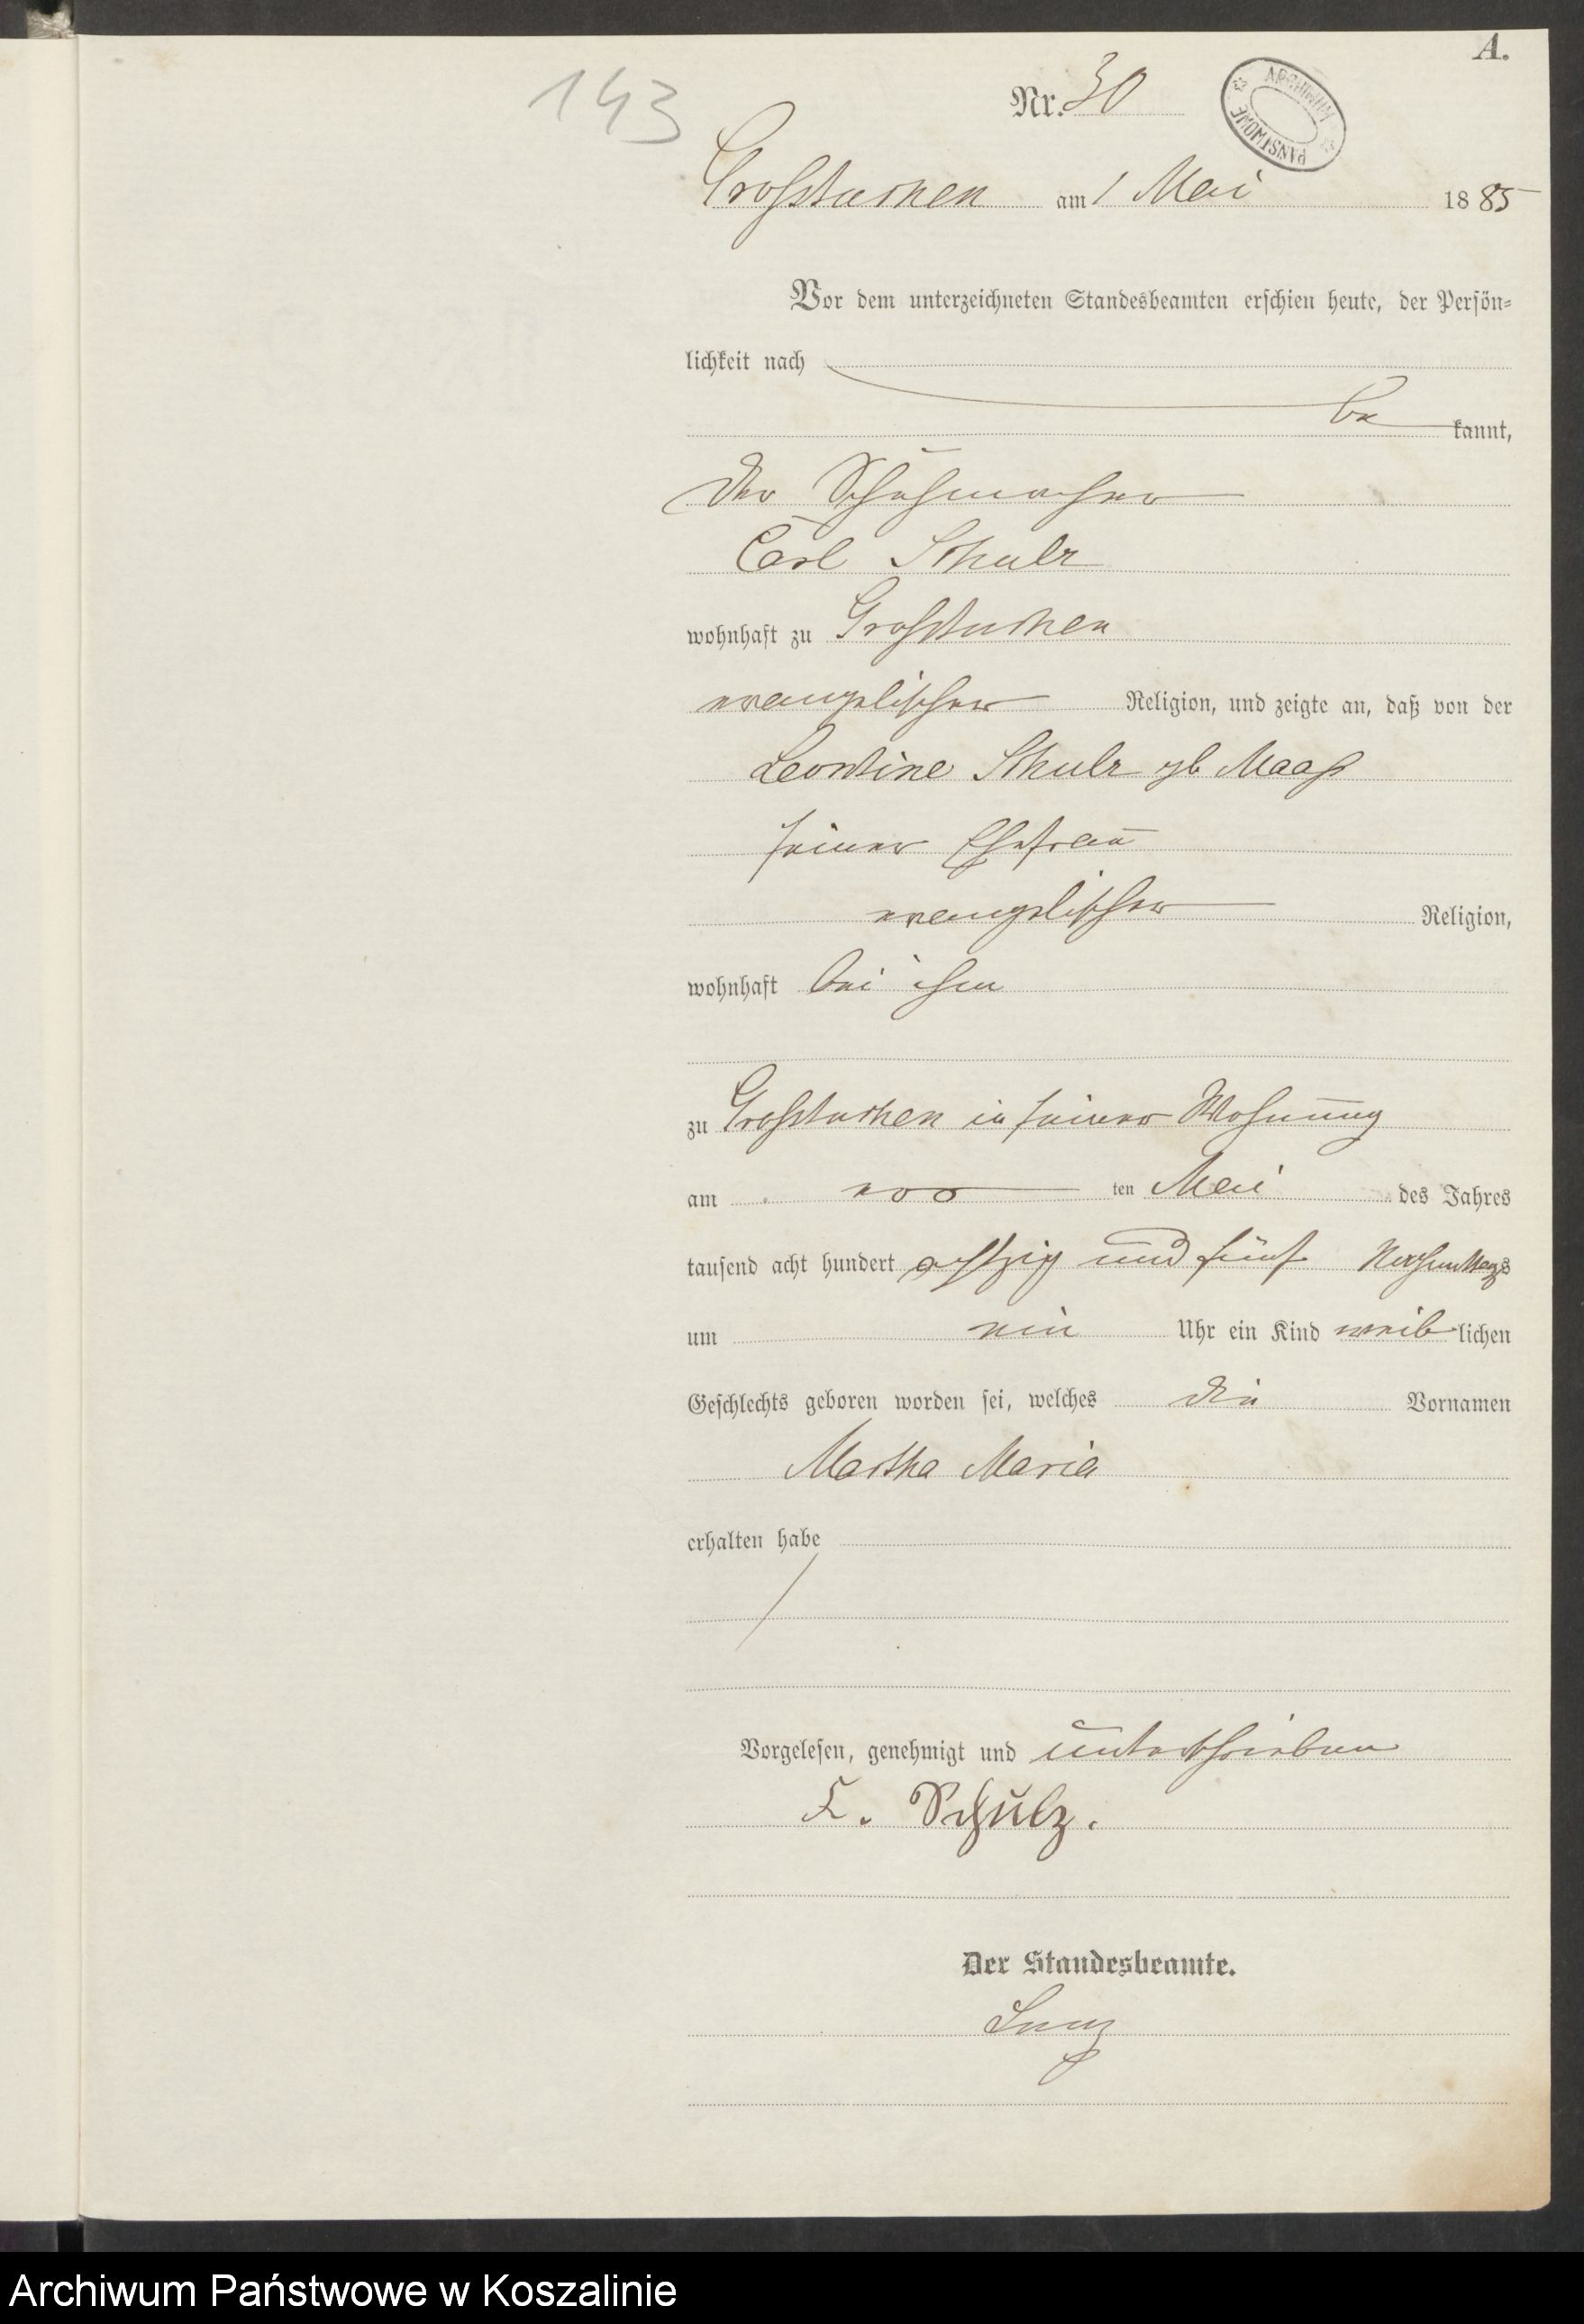 A.
143
Nr. 30
ARCHIWUM PAŃSTWOWE
Grosstuchen am 1 Mai 1885
Vor dem unterzeichneten Standesbeamten erschien heute, der Persön-
lichkeit nach
be kannt,
der Schuhmacher
Carl Schulz
wohnhaft zu Grosstuchen
evangelischer Religion, und zeigte an, daß von der
Leontine Schulz gb Maaß
seiner Ehefrau
evangelischer Religion,
wohnhaft bei ihm
zu Grosstuchen in seiner Wohnung
am ten Mai des Jahres
tausend acht hundert achtzig und fünf Nachmittags
um ein Uhr ein Kind weiblichen
Geschlechts geboren worden sei, welches die Vornamen
Martha Maria
erhalten habe
Vorgelesen, genehmigt und unterschrieben
Schulz.
Der Standesbeamte.
Archiwum Państwowe w Koszalinie